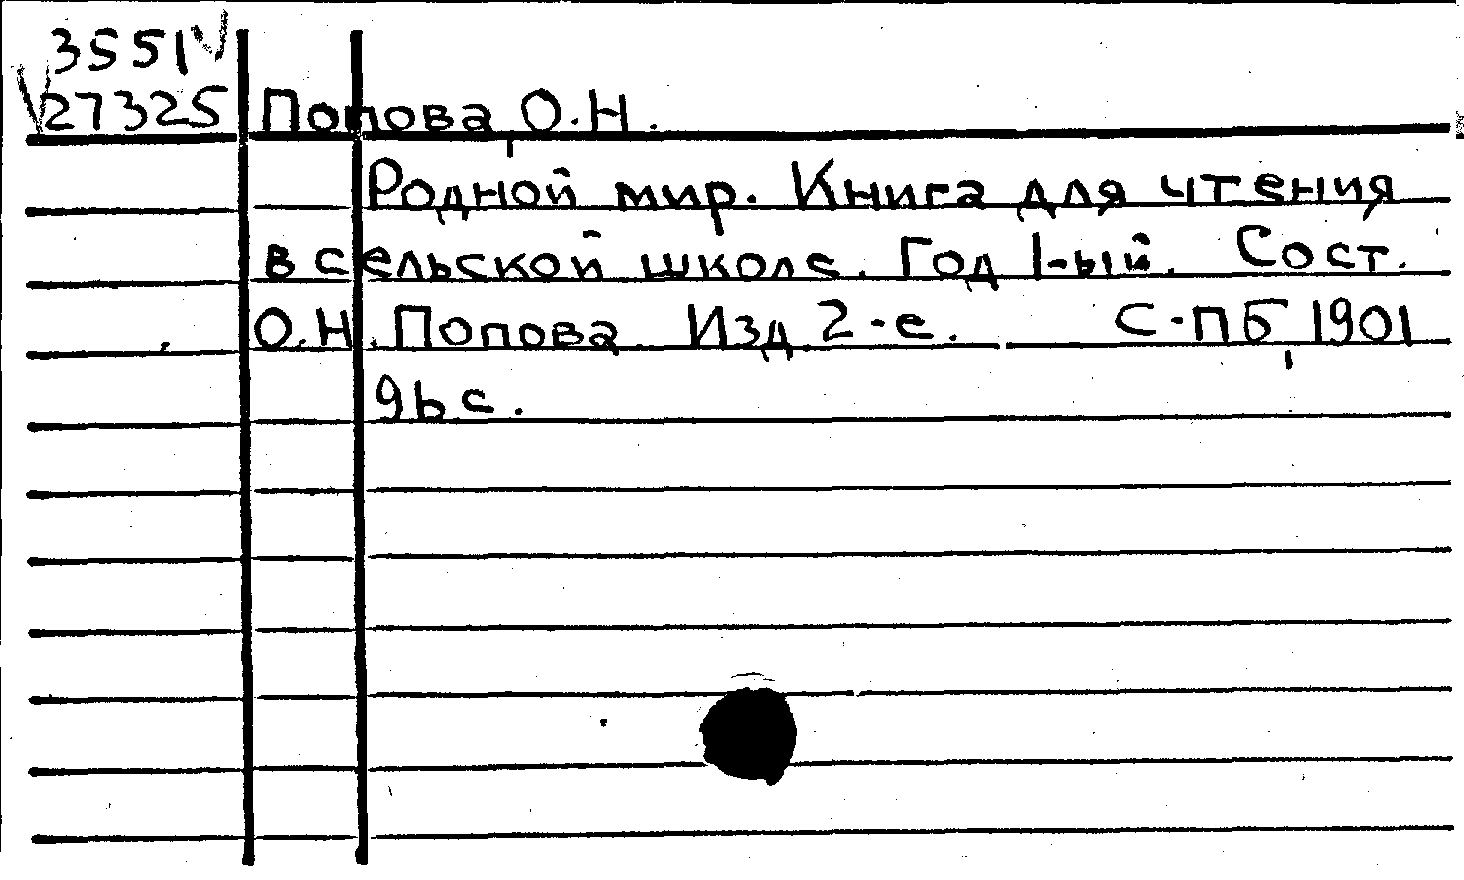 3551
27325 Попова, О.Н.
Родной мир. Книга для чтения
в сельской школе. Год 1-ый. Сост.
О.Н. Попова. Изд. 2-е. С-ПБ, 1901
96 с.